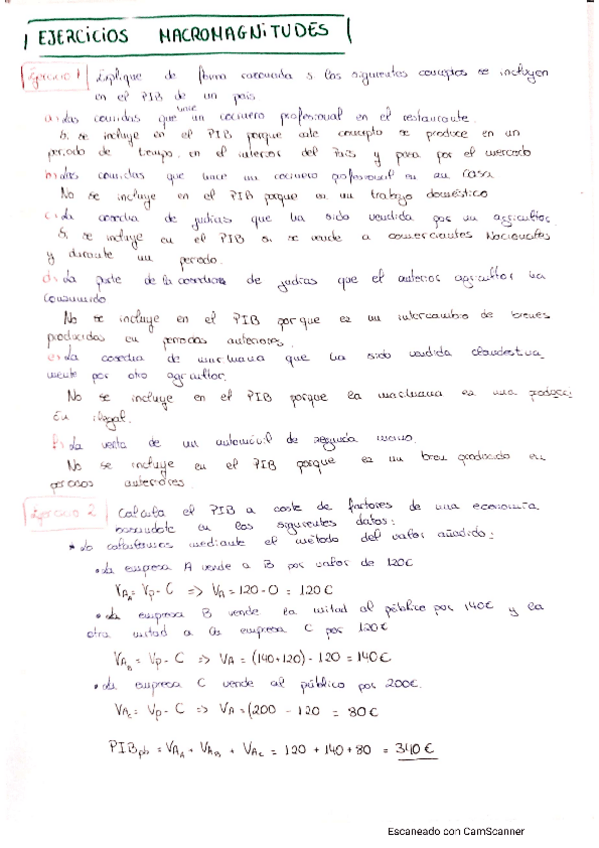 EJERCICIOS MACROMAGNITUDES
Ejercicio 1 Explique de forma razonada si los siguientes conceptos se incluyen
en el PIB de un país.
a) Las comidas que hace un cocinero profesional en el restaurante.
Si se incluye en el PIB porque este concepto se produce en un
periodo de tiempo, en el interior del País y pasa por el mercado
b) Las comidas que hace un cocinero profesional en su casa
No se incluye en el PIB porque es un trabajo doméstico
c) La cosecha de judías que ha sido vendida por un agricultor
Si se incluye en el PIB si se vende a comerciantes Nacionales
y durante un periodo.
d) La parte de la cosecha de judías que el anterior agricultor ha
consumido
No se incluye en el PIB porque es un intercambio de bienes
producidos en periodos anteriores.
e) La cosecha de marihuana que ha sido vendida clandestina
mente por otro agricultor.
No se incluye en el PIB porque la marihuana es una producci
ón ilegal.
f) La venta de un automóvil de segunda mano.
No se incluye en el PIB porque es un bien producido en
periodos anteriores.
Ejercicio 2 Calcula el PIB a coste de factores de una economía
basandote en los siguientes datos:
* Lo calculamos mediante el método del valor añadido:
• La empresa A vende a B por valor de 120€
VAA = Vp - C => VA = 120 - 0 = 120€
• La empresa B vende la mitad al público por 140€ y la
otra mitad a la empresa C por 120€
VAB = Vp - C => VA = (140+120) - 120 = 140€
• La empresa C vende al público por 200€.
VAC = Vp - C => VA = (200 - 120 = 80€
PIBpb = VAA + VAB + VAC = 120 + 140 + 80 = 340€
Escaneado con CamScanner